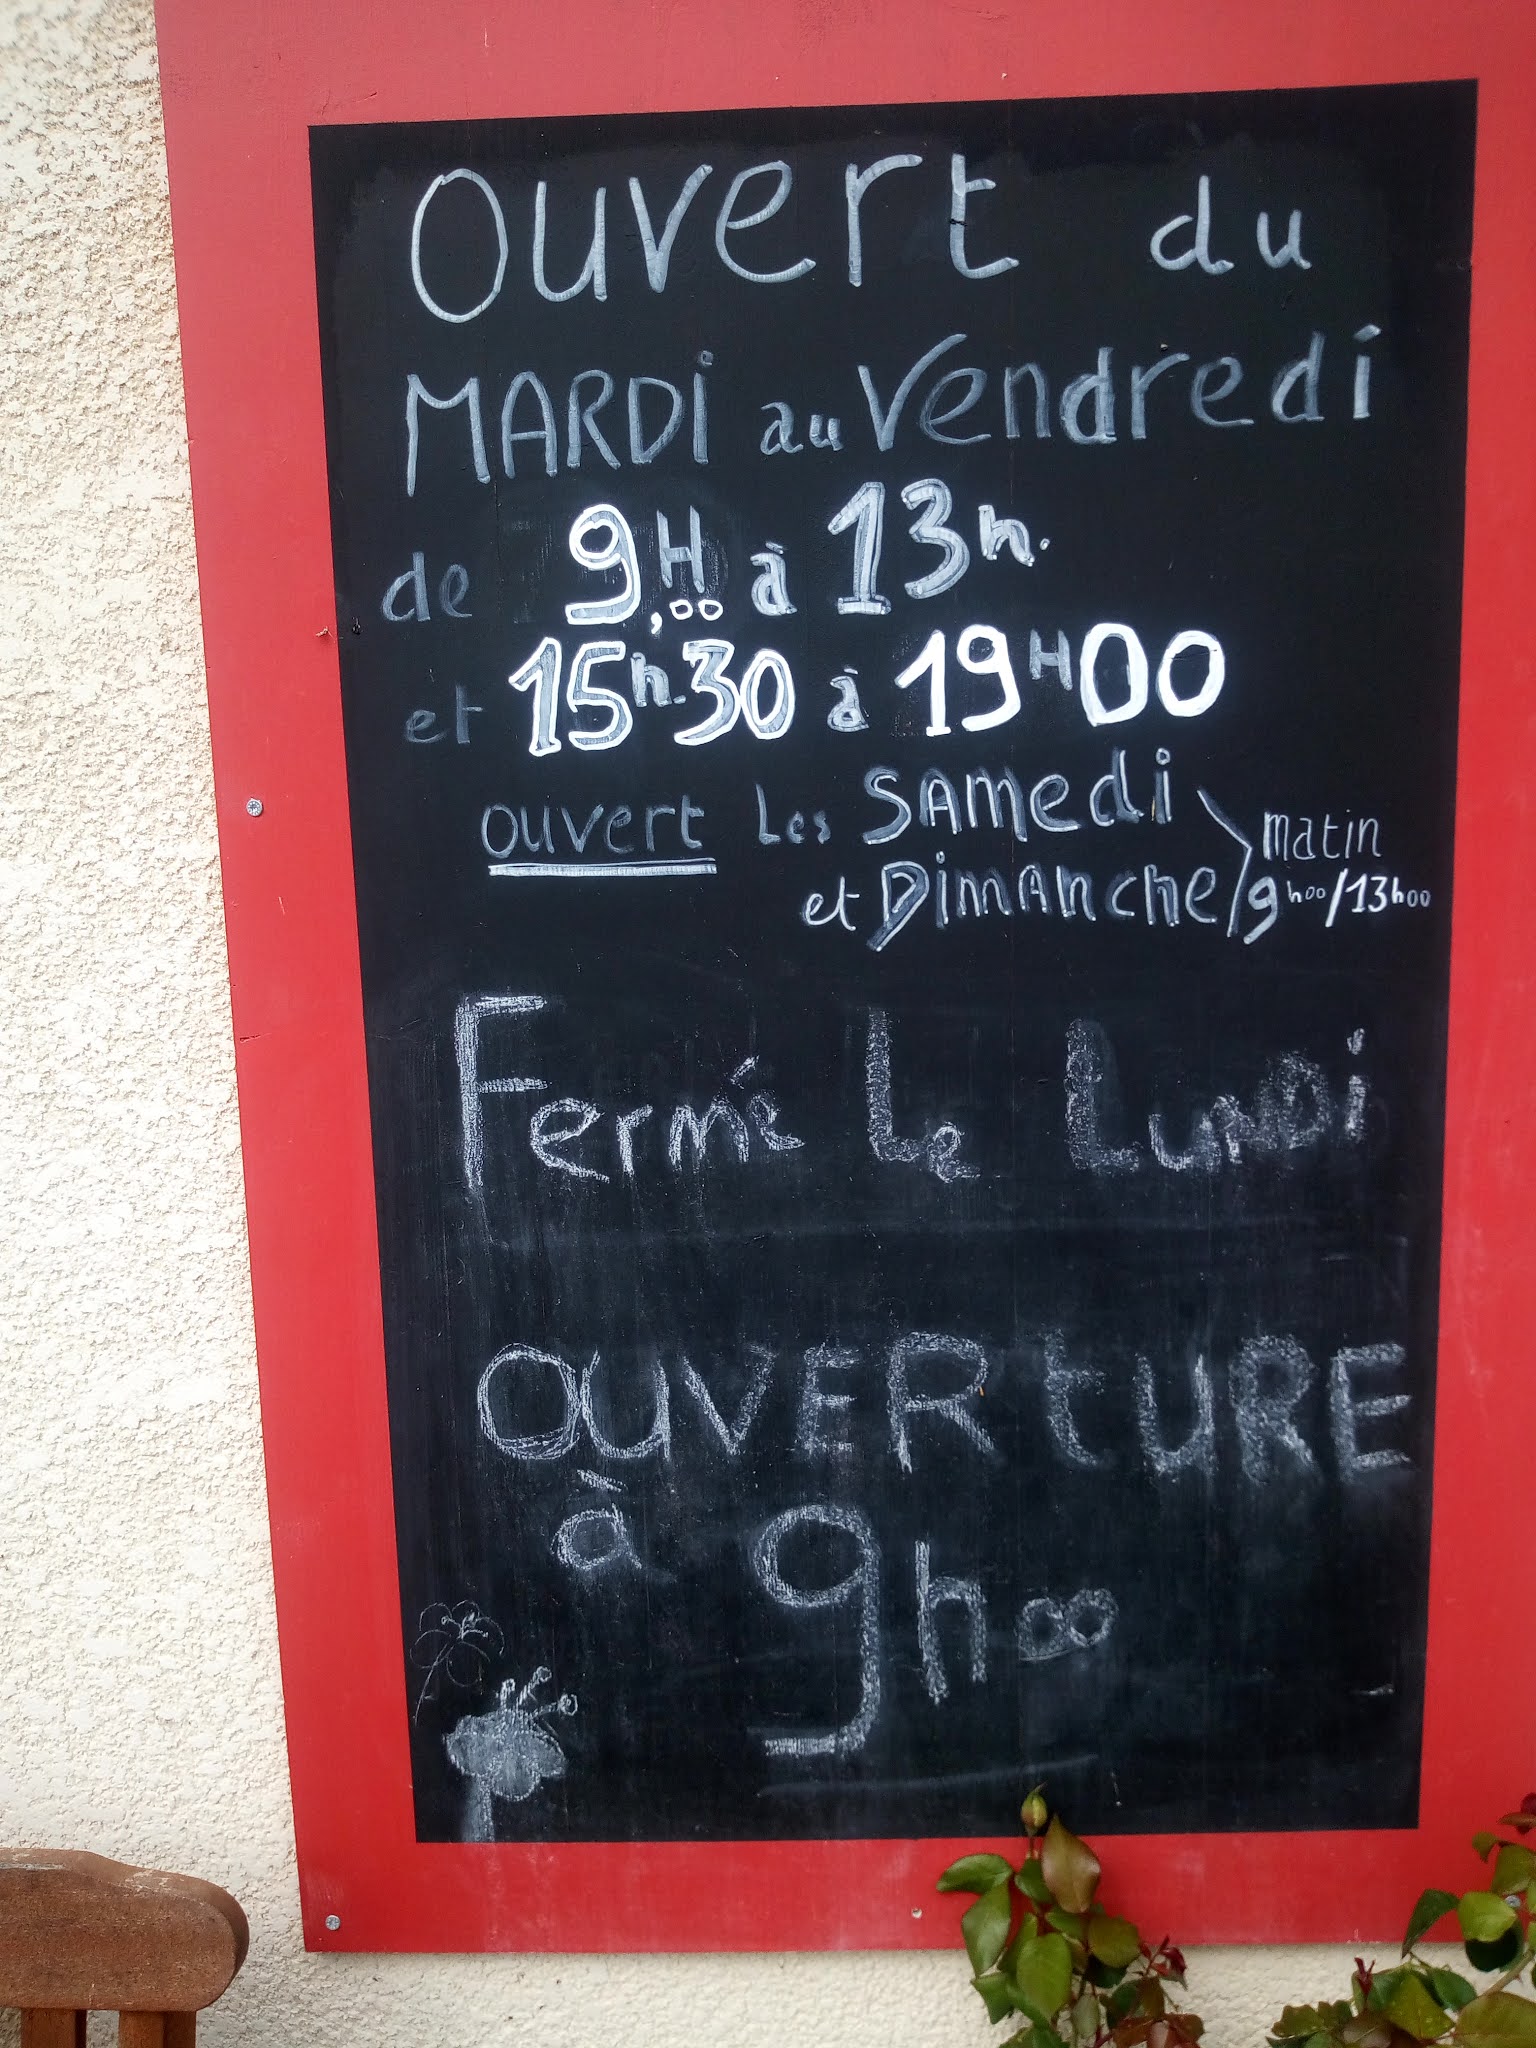 Ouvert du
MARDi au Vendredi
de 9H,00 à 13h.
et 15h.30 à 19H00
ouvert Les SAmedi
et DimAnche
matin
9h00/13h00
Fermé Le LunDi
OUVERtURE
à 9h00